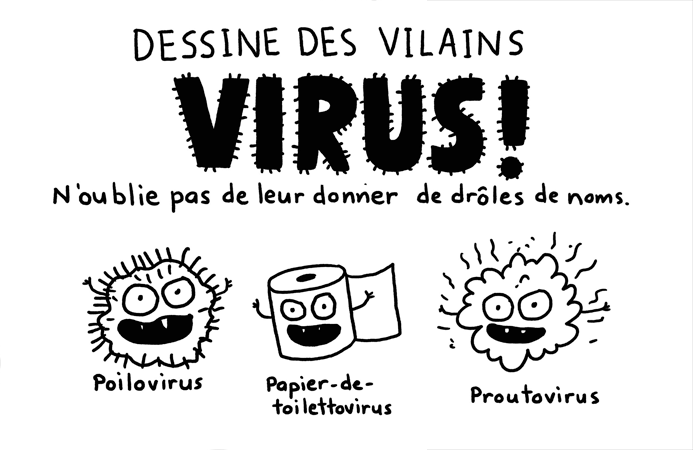 DESSINE DES VILAINS
VIRUS!
N'oublie pas de leur donner de drôles de noms.
Poilovirus
Papier-de-
toilettovirus
Proutovirus